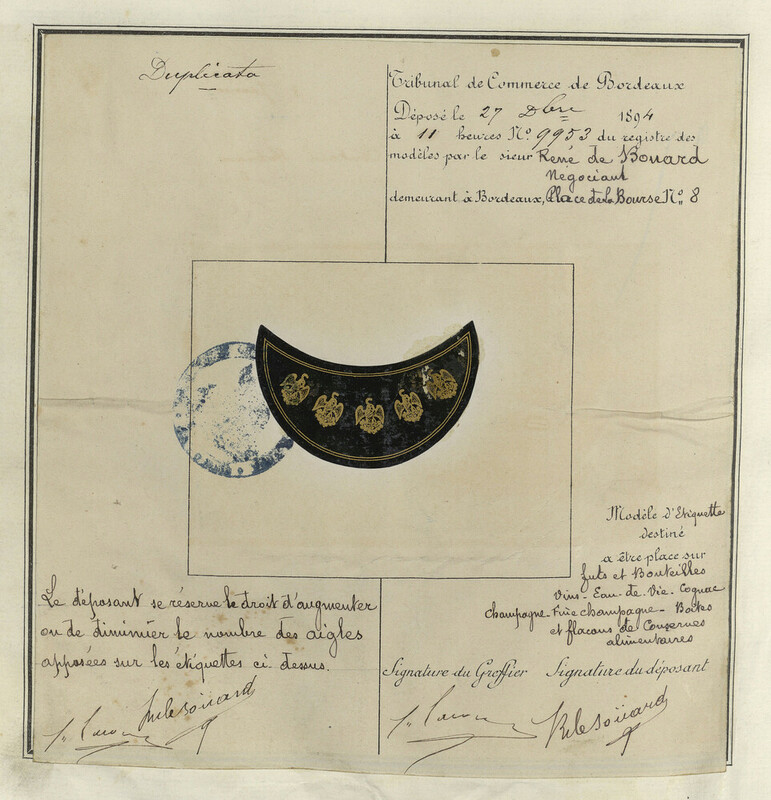 Duplicata
Tribunal de Commerce de Bordeaux
Déposé le 27 Dbre 1894
à 11 heures No. 9953 du registre des
modèles par le sieur René de Bouard
Négociant
demeurant à Bordeaux, Place de la Bourse No. 8
Modèle d'Etiquette
destiné
a être place sur
futs et Bouteilles
Vins - Eau - de - Vie - Cognac
Champagne - Fine champagne - Boites
et flacons de Conserves
alimentaires
Le déposant se réserve le droit d'augmenter
ou de diminuer le nombre des aigles
apposées sur les étiquettes ci dessus.
Signature du Greffier Signature du déposant
RdeBouard
RdeBouard